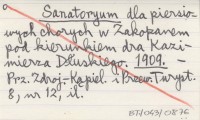 Sanatoryum dla piersio-
wych chorych w Zakopanem
pod kierunkiem dra Kazi-
mierza Dłuskiego. 1909. -
Prz. Zdroj.-Kąpiel. i Przew. Turyst.
8, nr 12, il.
BTT/043/018 76